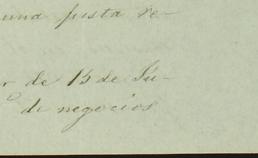 una justa re-
de 15 de Ju-
de negocios